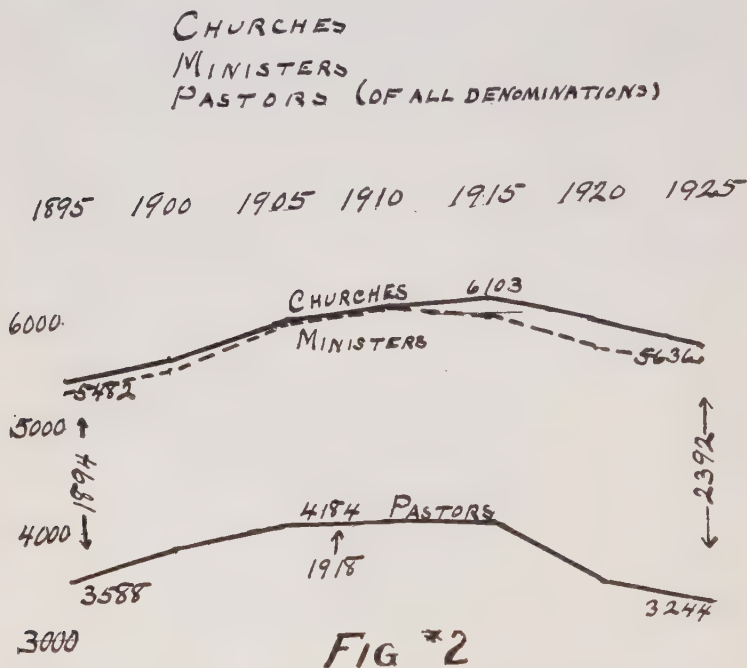 CHURCHES
MINISTERS
PASTORS (OF ALL DENOMINATIONS)
1895 1900 1905 1910 1915 1920 1925
6103
CHURCHES
6000
MINISTERS
5636
5482
5000
1894
2392
4184 PASTORS
4000
1918
3588
3244
3000
FIG #2